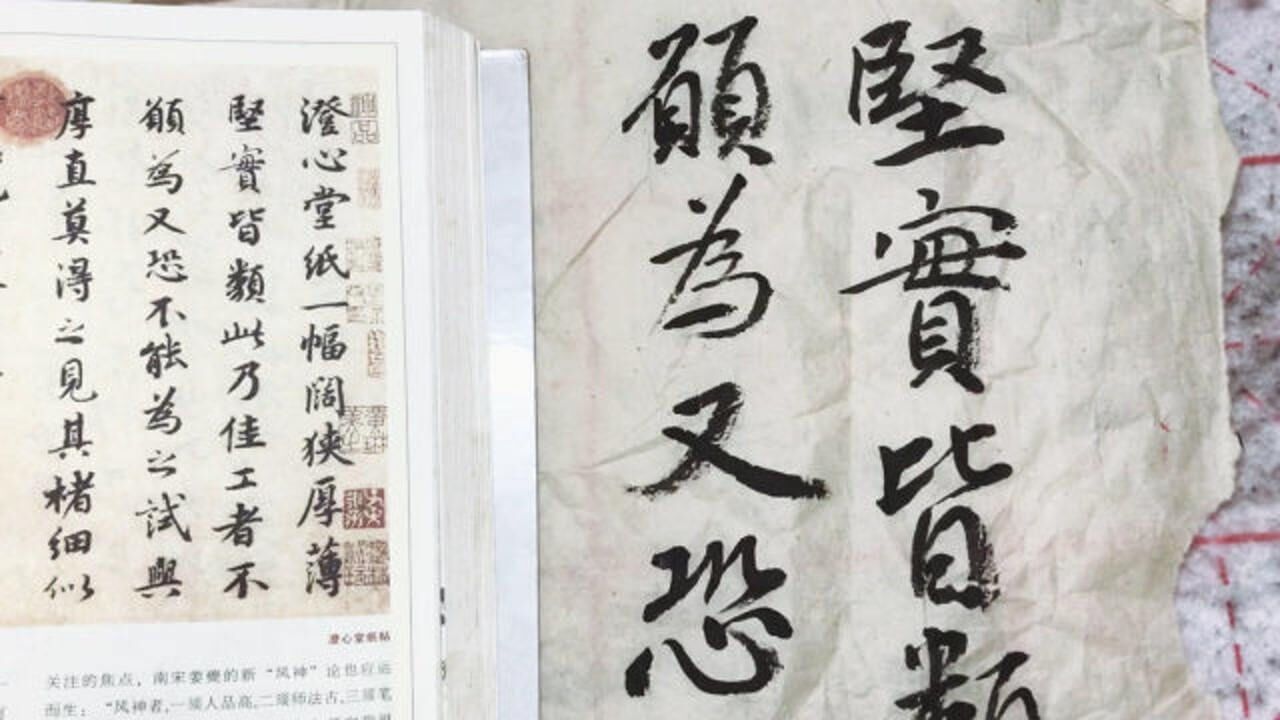 澄心堂紙一幅闊狹厚薄
堅實皆類此乃佳工者不
願為又恐不能為之試與
厚直莫得之見其楮細似
澄心堂纸帖
关注的焦点，南宋姜夔的新“风神”论也应运
而生：“风神者,一须人品高,二须师法古,三须笔
堅實皆類
願為又恐